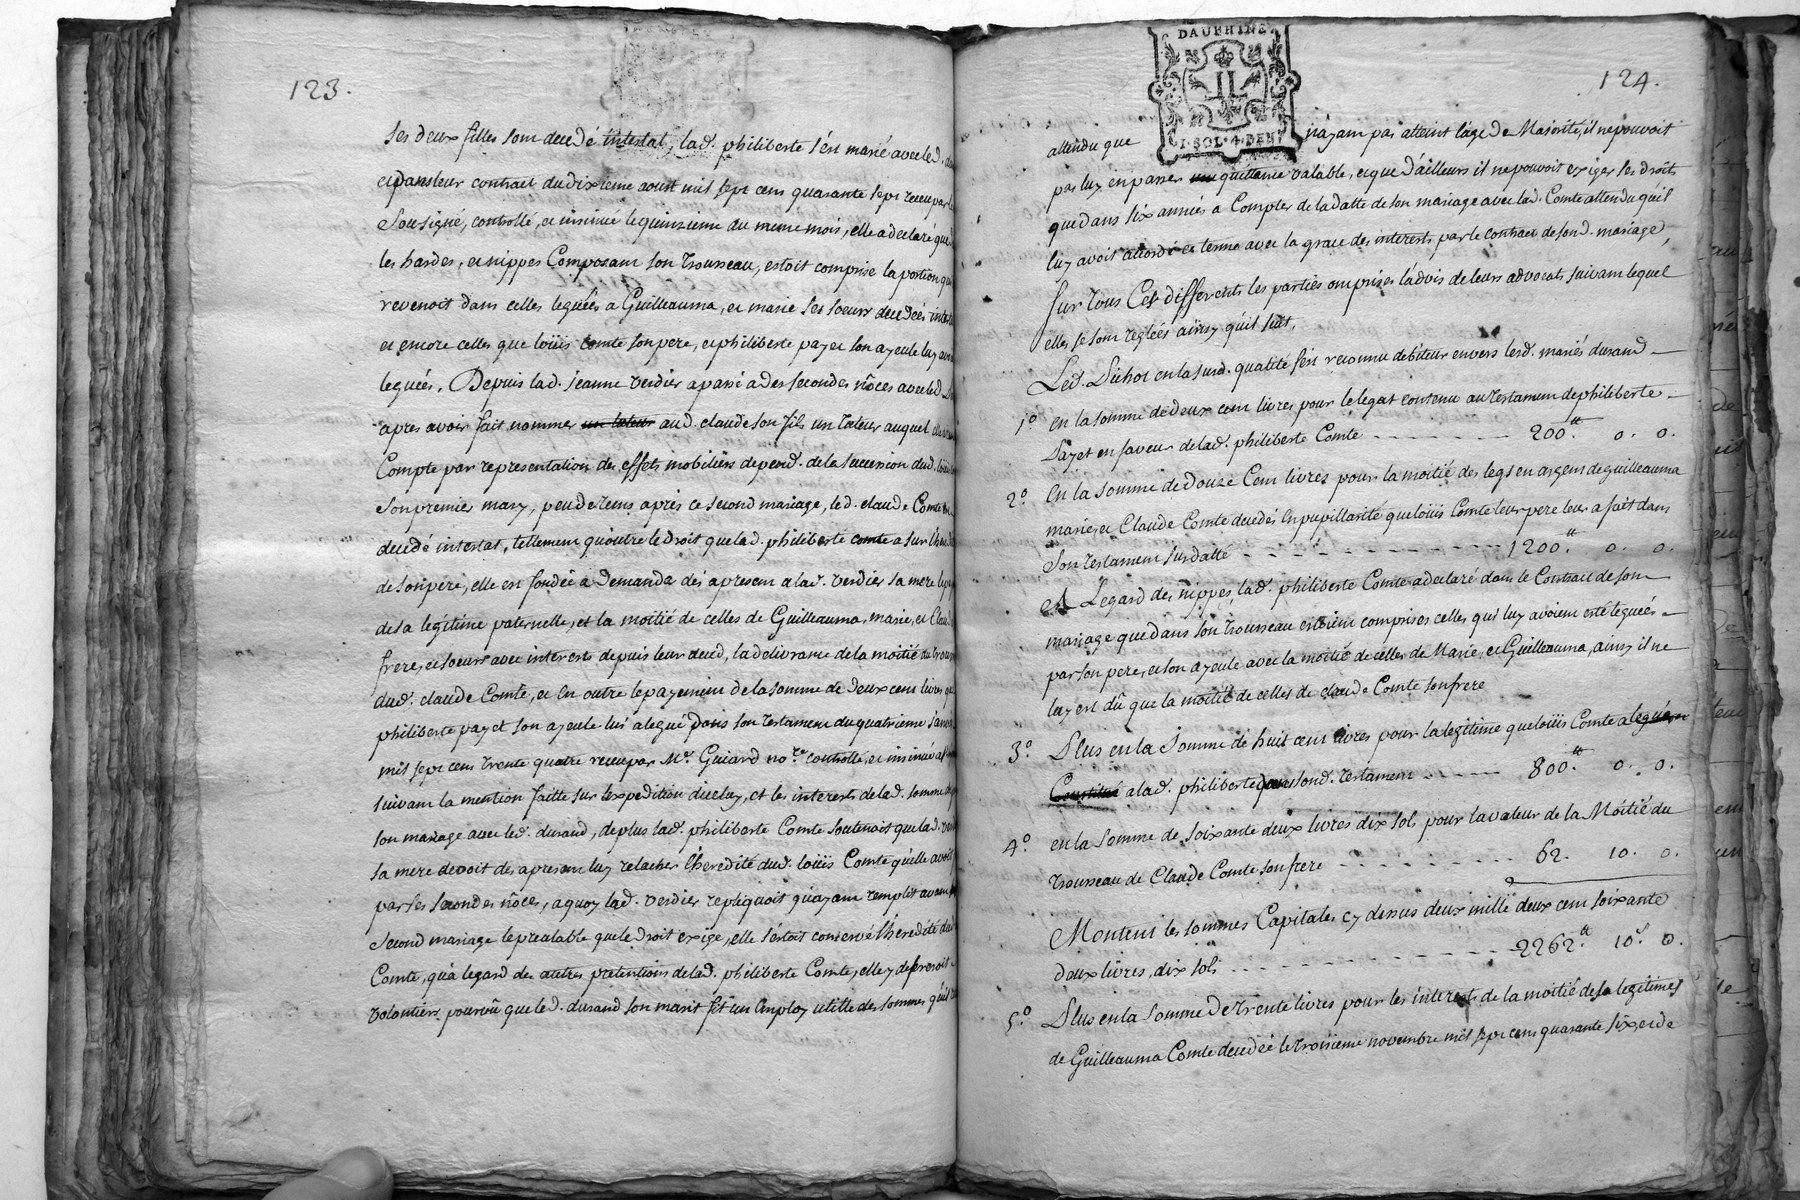 123.
ses deux filles sont decedé intestat, lad. philiberte s'est marié avec led.
et dans leur contract du dixieme aoust mil sept cens quarante sept receu par le
sousigné, controllé, et insinué le quinzieme du meme mois, elle a declaré que
les hardes, et nippes composant son trousseau, estoit comprise la portion qui
revenoit dans celles leguées a Guilleauma, et marie ses soeurs decedées
et encore celles que loüis comte son pere, et philiberte payet son ayeule luy
leguées. Depuis lad. jeanne verdier a passé a des secondes nôces avec led.
apres avoir fait nommer un tuteur aud. claude son fils un tuteur auquel
Compte par representation des effets mobiliers depend. de la succession dud. louis
son premier mary, peu de tems après ce second mariage, led. claude Comte
decedé intestat, tellement qu'outre le droit que lad. philiberte comte a sur l'here
de son pere, elle est fondée à demander dés apresent a lad. verdier sa mere le
de sa legitime paternelle, et la moitié de celles de Guilleauma, marie, et Clau
frere, et soeurs avec interests depuis leur deced, la delivrance de la moitié du trous
dud. claude Comte, et en outre le payement de la somme de deux cent livres que
philiberte payet son ayeule lui a legué dans son testament du quatrieme janv
mil sept cens trente quatre receu par Me. Guiard nore. controllé, et insinué
suivant la mention faitte sur l'expedition diceluy, et les interests de lad. somme
son mariage avec led. durand, de plus lad. philiberte Comte soutenoit que lad. ver
sa mere devoit des apresent luy relacher l'heredité dud. loüis Comte qu'elle avoit
par ses secondes nôces, a quoy lad. verdier repliquoit qu'ayant remplit avant
second mariage le prealable que le droit exige, elle s'etoit conservé l'heredité dud
Comte, qu'a legard des autres pretentions de lad. philiberte Comte, elle y defereroit
volontiers pourvû que led. durand son marit fit un employ utille des sommes qu'il
124.
DAUPHINE
I·SOL·4·DEN
attendu que n'ayant pas atteint l'age de Majorité, il ne pouvoit
pas luy en passer un quittance valable, et que d'ailleurs il ne pouvoit exiger ses droits
que dans six années a Compter de la datte de son mariage avec lad. Comte attendu qu'il
luy avoit accordé ce terme avec la grace des interests par le contract de sond. mariage,
sur tous Ces differents les parties ont prises l'advis de leurs advocats suivant lequel
elles se sont reglées ainsy qu'il suit.
Led. Dichot en lasusd. qualité s'est reconnu debiteur envers lesd. mariés durand
1° en la somme de deux cent livres pour le legat contenu au testament de philiberte
payet en faveur de lad. philiberte Comte 200tt. 0. 0.
2° En la somme de douze Cent livres pour la moitié des legs en argent de guilleauma
marie, et Claude Comte decedés en pupillarité que loüis Comte leur pere leur a fait dans
son testament susdatté 1200tt. 0. 0.
et a l'egard des nippes lad. philiberte Comte a declaré dans le Contract de son
mariage que dans son trousseau estoient comprises celles qui luy avoient esté leguées
par son pere, et son ayeule avec la moitié de celles de Marie, et Guilleauma, ainsy il ne
luy est dû que la moitié de celles de claude Comte son frere
3° Plus en la somme de huit cent livres pour la legitime que loüis Comte a legué
Constitué a lad. philiberte dans sond. testament 800tt. 0. 0.
4° en la somme de soixante deux livres dix sols pour la valeur de la Moitié du
trousseau de Claude Comte son frere 62. 10. 0.
Montent les sommes Capitales cy dessus deux mille deux cent soixante
deux livres, dix sols 2262tt. 10s. 0.
5° Plus en la somme de trente livres pour les interests de la moitié de la legitimes
de Guilleauma Comte decedée le troisieme novembre mil sept cens quarante six, et de